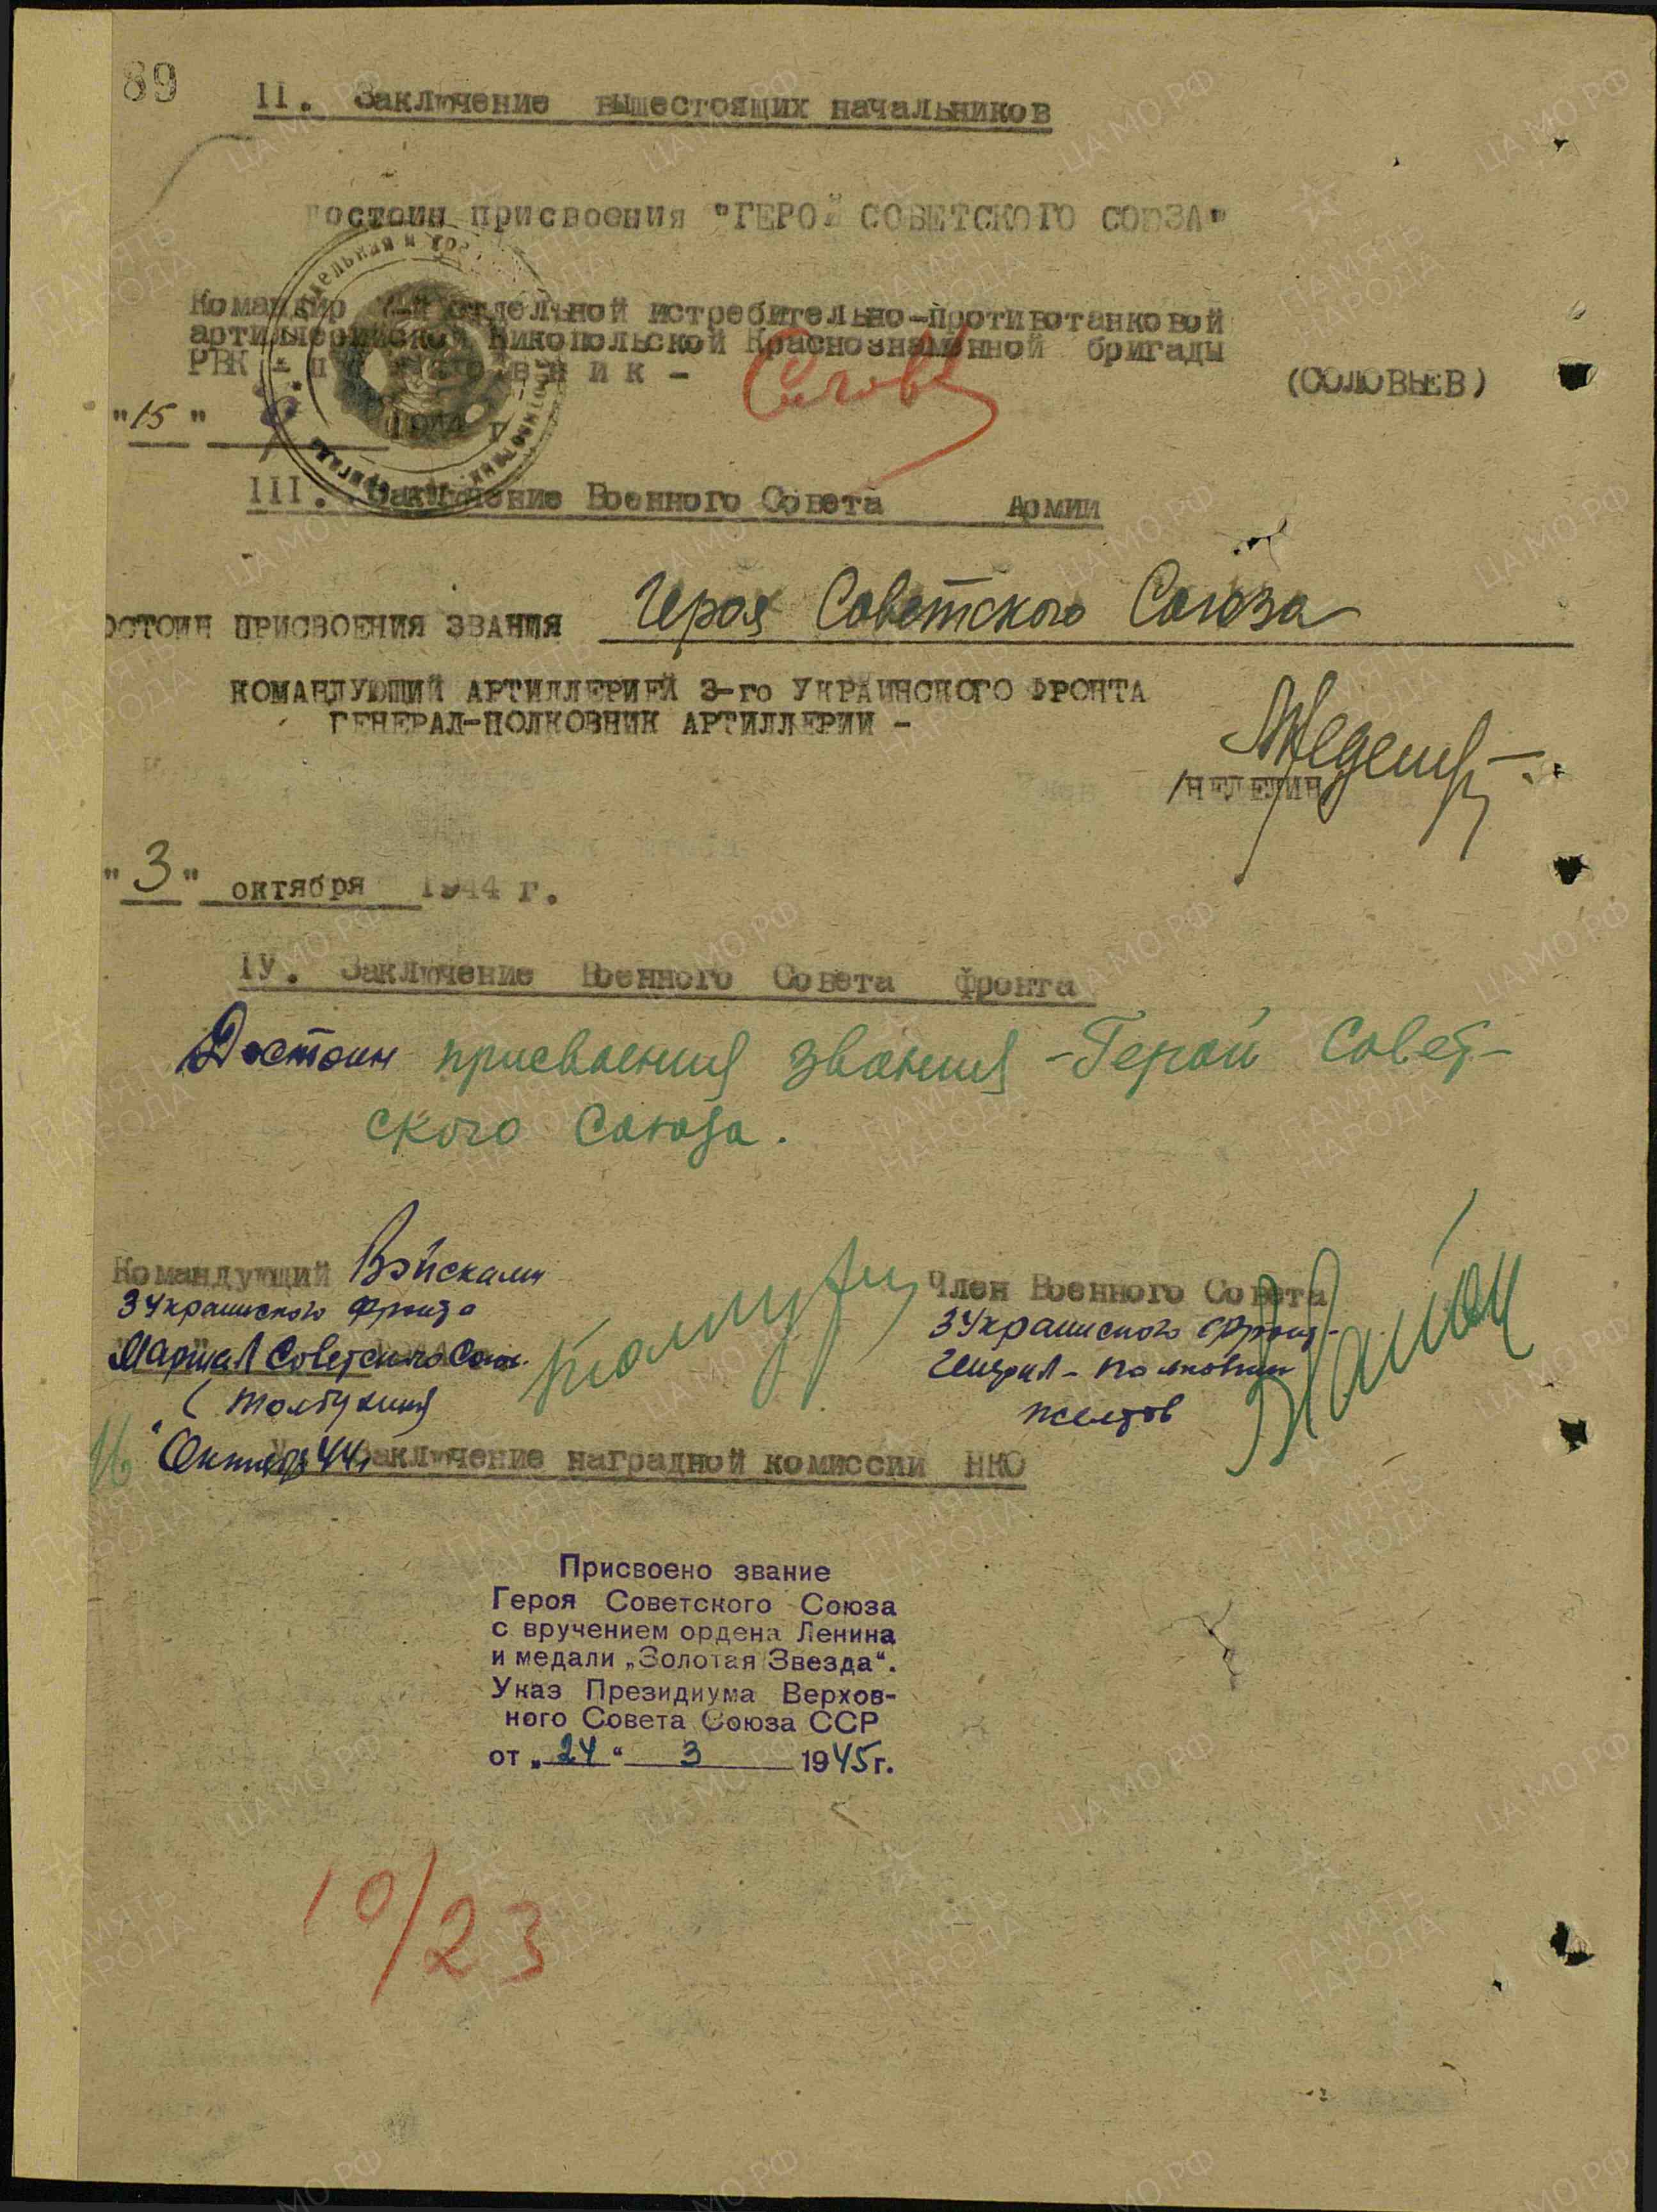 89
II. Заключение вышестоящих начальников
достоин присвоения "ГЕРОЙ СОВЕТСКОГО СОЮЗА"
Командир 7-й отдельной истребительно-противотанковой
артиллерийской Никопольской Краснознаменной бригады
РВГК - полковник -
(СОЛОВЬЕВ)
"15" 1944 г
III. Заключение Военного Совета Армии
остоин присвоения звания Героя Советского Союза
КОМАНДУЮЩИЙ АРТИЛЛЕРИЕЙ 3-го УКРАИНСКОГО ФРОНТА
ГЕНЕРАЛ-ПОЛКОВНИК АРТИЛЛЕРИИ -
/НЕДЕЛИН
"3" октября 1944 г.
IУ. Заключение Военного Совета фронта
Достоин присвоения звания - Герой Совет-
ского Союза.
Командующий Войсками
3 Украинского фронта
Маршал Советского Союз.
(Толбухин)
Член Военного Совета
3 Украинского фронт-
Генерал-полковник
Желтов
16 " Октября 44г
Заключение наградной комиссии НКО
Присвоено звание
Героя Советского Союза
с вручением ордена Ленина
и медали „Золотая Звезда“.
Указ Президиума Верхов-
ного Совета Союза ССР
от „24“ 3 1945г.
10/23
ЦА МО РФ
ПАМЯТЬ НАРОДА